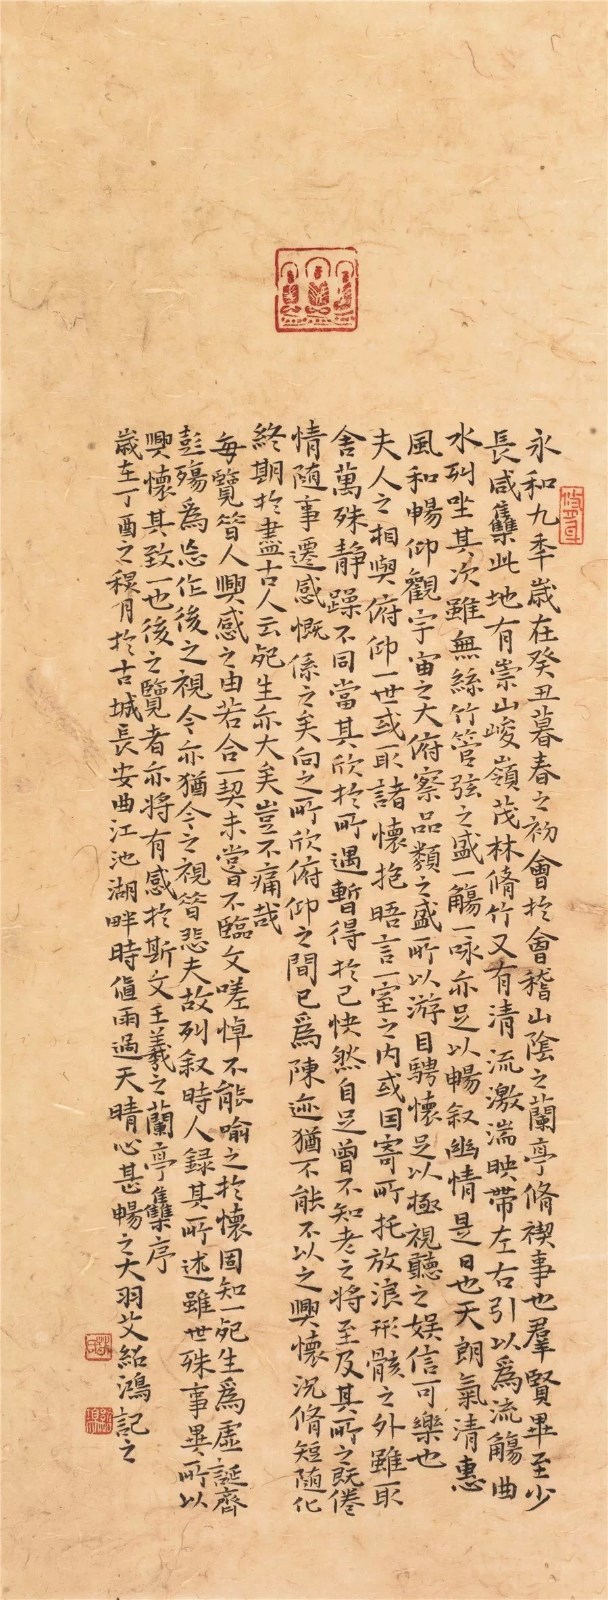 永和九秊歲在癸丑暮春之初會於會稽山陰之蘭亭脩禊事也羣賢畢至少
長咸集此地有崇山峻嶺茂林脩竹又有清流激湍映帶左右引以爲流觴曲
水列坐其次雖無絲竹管弦之盛一觴一咏亦足以暢叙幽情是日也天朗氣清惠
風和暢仰觀宇宙之大俯察品類之盛所以游目騁懷足以極視聽之娱信可樂也
夫人之相與俯仰一世或取諸懷抱晤言一室之内或因寄所托放浪形骸之外雖取
舍萬殊静躁不同當其欣於所遇暫得於己怏然自足曾不知老之將至及其所之既倦
情随事遷感慨係之矣向之所欣俯仰之間已爲陳迹猶不能不以之興懷況脩短随化
終期於盡古人云死生亦大矣豈不痛哉
每覽昔人興感之由若合一契未嘗不臨文嗟悼不能喻之於懷固知一死生爲虚誕齊
彭殤爲妄作後之視今亦猶今之視昔悲夫故列叙時人録其所述雖世殊事異所以
興懷其致一也後之覽者亦將有感於斯文王羲之蘭亭集序
歲在丁酉之穐月於古城長安曲江池湖畔時值雨過天晴心甚暢之大羽艾紹鴻記之